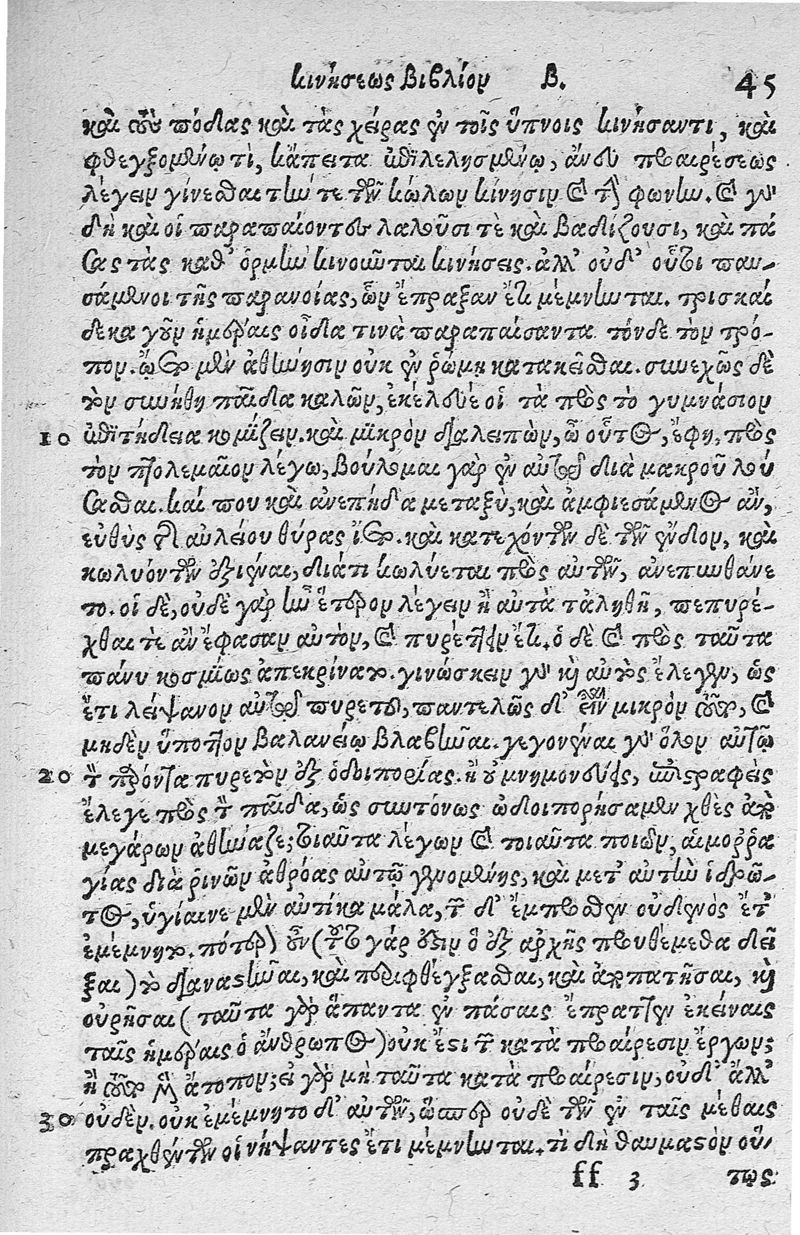 κινήσεως Βιβλίον Β. 45
καὶ τοὺς πόδας καὶ τὰς χεῖρας ἐν τοῖς ὕπνοις κινήσαντι, καὶ
φθεγξομένῳ τὶ, κἄπειτα ἐπιλελησμένῳ, ἄνευ προαιρέσεως
λέγειν γίνεσθαι τήν τε τῶν κώλων κίνησιν καὶ τὴν φωνήν. καὶ γὰρ
δὴ καὶ οἱ παραπαίοντες λαλοῦσι τὲ καὶ βαδίζουσι, καὶ πά
σας τὰς καθ' ὁρμὴν κινοῦνται κινήσεις. ἀλλ' οὐδ' οὗτοι παυ-
σάμενοι τῆς παρανοίας, ὧν ἔπραξαν ἔτι μέμνηνται. τρισκαί
δεκα γοῦν ἡμέραις οἶδα τινὰ παραπαίσαντα τόνδε τὸν τρό-
πον. ᾤετο μὲν ἀθήνησιν οὐκ ἐν ῥώμῃ κατακεῖσθαι. συνεχῶς δὲ
τὸν συνήθη παῖδα καλῶν, ἐκέλευέ οἱ τὰ πρὸς τὸ γυμνάσιον
10 ἐπιτήδεια κομίζειν. καὶ μικρὸν διαλειπὼν, ὦ οὗτος, ἔφη, πρὸς
τὸν πτολεμαῖον λέγω, βούλομαι γὰρ ἐν αὐτῷ διὰ μακροῦ λού
σασθαι. καί που καὶ ἀνεπήδα μεταξὺ, καὶ ἀμφιεσάμενος ἂν,
εὐθὺς τῆς αὐλείου θύρας ἵετο. καὶ κατεχόντων δὲ τῶν ἔνδον, καὶ
κωλυόντων ἐξιέναι, διάτι κωλύεται πρὸς αὐτῶν, ἀνεπυνθάνε
το. οἱ δὲ, οὐδὲ γὰρ ἦν ἕτερον λέγειν ἢ αὐτὰ τἀληθῆ, πεπυρέ-
χθαι τὲ ἂν ἔφασαν αὐτὸν, καὶ πυρέττειν ἔτι. ὁ δὲ καὶ πρὸς ταῦτα
πάνυ κοσμίως ἀπεκρίνατο. γινώσκειν γὰρ καὶ αὐτὸς ἔλεγεν, ὡς
ἔτι λείψανον αὐτῷ πυρετοῦ, παντελῶς δ' εἶναι μικρὸν τοῦτο, καὶ
μηδὲν ὕποπτον βαλανείῳ βλαβῆναι. γεγονέναι γὰρ ὅλον αὐτῷ
20 τὸν πρόντα πυρετὸν ἐξ ὁδοιπορίας. ἢ οὐ μνημονεύεις, ἐπιστραφεὶς
ἔλεγε πρὸς τὸν παῖδα, ὡς συντόνως ὡδοιπορήσαμεν χθὲς ἀπὸ
μεγάρων ἀθήναζε; τοιαῦτα λέγων καὶ τοιαῦτα ποιῶν, αἱμοῤῥα
γίας διὰ ῥινῶν ἀθρόας αὐτῷ γενομένης, καὶ μετ' αὐτὴν ἱδρῶ-
τος, ὑγίαινε μὲν αὐτίκα μάλα, τῶν δ' ἔμπροσθεν οὐδενὸς ἔτ'
ἐμέμνητο. πότερον οὖν (τοῦτο γάρ ἐστιν ὃ ἐξ ἀρχῆς προυθέμεθα δεῖ
ξαι) τὸ διαναστῆναι, καὶ περιφθέγξασθαι, καὶ ἀποπατῆσαι, καὶ
οὐρῆσαι (ταῦτα γὰρ ἅπαντα ἐν πάσαις ἔπραττεν ἐκείναις
ταῖς ἡμέραις ὁ ἄνθρωπος) οὐκ ἔστι τῶν κατὰ προαίρεσιν ἔργων;
ἢ τοῦτο μὲν ἄτοπον; εἰ γὰρ μὴ ταῦτα κατὰ προαίρεσιν, οὐδ' ἄλλ'
30 οὐδέν. οὐκ ἐμέμνητο δ' αὐτῶν, ὥσπερ οὐδὲ τῶν ἐν ταῖς μέθαις
πραχθέντων οἱ νήψαντες ἔτι μέμνηνται. τὶ δὴ θαυμαστὸν οὕ-
ff 3 τως